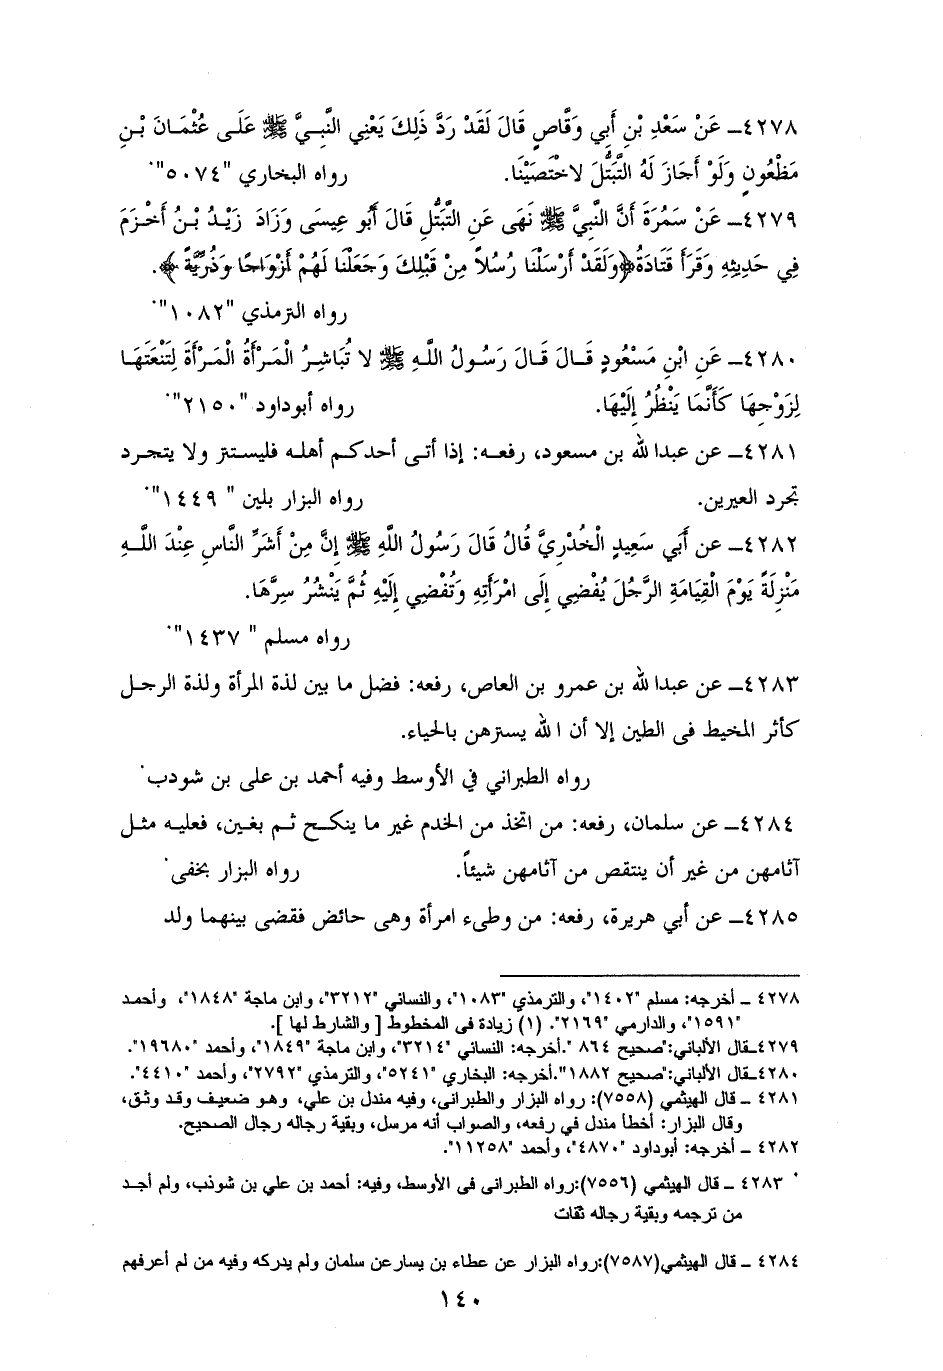 ٤٢٧٨ــ عَنْ سَعْدِ بْنِ أَبِي وَقَّاصٍ قَالَ لَقَدْ رَدَّ ذَلِكَ يَعْنِي النَّبِيَّ ﷺ عَلَى عُثْمَانَ بْنِ
مَظْعُونٍ وَلَوْ أَجَازَ لَهُ التَّبَتُّلَ لاخْتَصَيْنَا. رواه البخاري "٥٠٧٤".
٤٢٧٩ــ عَنْ سَمُرَةَ أَنَّ النَّبِيَّ ﷺ نَهَى عَنِ التَّبَتُّلِ قَالَ أَبُو عِيسَى وَزَادَ زَيْدُ بْنُ أَخْزَمَ
فِي حَدِيثِهِ وَقَرَأَ قَتَادَةُ﴿وَلَقَدْ أَرْسَلْنَا رُسُلاً مِنْ قَبْلِكَ وَجَعَلْنَا لَهُمْ أَزْوَاجًا وَذُرِّيَّةً﴾.
رواه الترمذي "١٠٨٢".
٤٢٨٠ــ عَنِ ابْنِ مَسْعُودٍ قَالَ قَالَ رَسُولُ اللَّهِ ﷺ لا تُبَاشِرُ الْمَرْأَةُ الْمَرْأَةَ لِتَنْعَتَهَا
لِزَوْجِهَا كَأَنَّمَا يَنْظُرُ إِلَيْهَا. رواه أبوداود "٢١٥٠".
٤٢٨١ــ عن عبدا لله بن مسعود، رفعه: إذا أتى أحدكم أهله فليستتر ولا يتجرد
تجرد العيرين. رواه البزار بلين " ١٤٤٩".
٤٢٨٢ــ عن أَبَي سَعِيدٍ الْخُدْرِيَّ قُالُ قَالَ رَسُولُ اللَّهِ ﷺ إِنَّ مِنْ أَشَرِّ النَّاسِ عِنْدَ اللَّهِ
مَنْزِلَةً يَوْمَ الْقِيَامَةِ الرَّجُلَ يُفْضِي إِلَى امْرَأَتِهِ وَتُفْضِي إِلَيْهِ ثُمَّ يَنْشُرُ سِرَّهَا.
رواه مسلم " ١٤٣٧".
٤٢٨٣ــ عن عبدا لله بن عمرو بن العاص، رفعه: فضل ما بين لذة المرأة ولذة الرجل
كأثر المخيط فى الطين إلا أن ا لله يسترهن بالحياء.
رواه الطبراني في الأوسط وفيه أحمد بن على بن شودب.
٤٢٨٤ــ عن سلمان، رفعه: من اتخذ من الخدم غير ما ينكح ثم بغين، فعليه مثل
آثامهن من غير أن ينتقص من آثامهن شيئاً. رواه البزار بخفى.
٤٢٨٥ــ عن أبي هريرة، رفعه: من وطىء امرأة وهى حائض فقضى بينهما ولد
٤٢٧٨ ــ أخرجه: مسلم "١٤٠٢"، والترمذي "١٠٨٣"، والنسائي "٣٢١٢"، وابن ماجة "١٨٤٨"، وأحمد
"١٥٩١"، والدارمي "٢١٦٩". (١) زيادة فى المخطوط [ والشارط لها ].
٤٢٧٩ــقال الألباني:"صحيح ٨٦٤ ".أخرجه: النسائي "٣٢١٤"، وابن ماجة "١٨٤٩"، وأحمد "١٩٦٨٠".
٤٢٨٠ــقال الألباني:"صحيح ١٨٨٢".أخرجه: البخاري "٥٢٤١"، والترمذي "٢٧٩٢"، وأحمد "٤٤١٠".
٤٢٨١ ــ قال الهيثمي (٧٥٥٨): رواه البزار والطبرانى، وفيه مندل بن علي، وهو ضعيف وقد وثق،
وقال البزار: أخطأ مندل في رفعه، والصواب أنه مرسل، وبقية رجاله رجال الصحيح.
٤٢٨٢ ــ أخرجه: أبوداود "٤٨٧٠"، وأحمد "١١٢٥٨".
٤٢٨٣ ــ قال الهيثمي (٧٥٥٦):رواه الطبرانى فى الأوسط، وفيه: أحمد بن علي بن شوذب، ولم أجد
من ترجمه وبقية رجاله ثقات
٤٢٨٤ ــ قال الهيثمي(٧٥٨٧):رواه البزار عن عطاء بن يسارعن سلمان ولم يدركه وفيه من لم أعرفهم
١٤٠